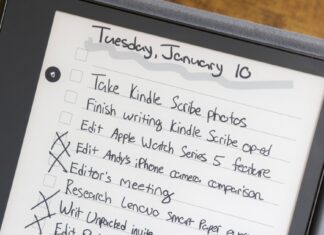 Tuesday, January 10
Take Kindle Scribe photos
Finish writing Kindle Scribe op-ed
Edit Apple Watch Series 5 feature
Edit Andy's iPhone camera comparison
Editor's meeting
Research Lenovo Smart Paper
Writ Unpacked invite
Edit